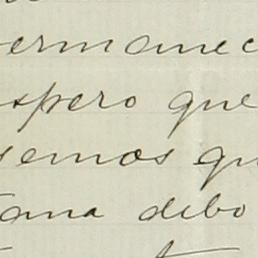 ermanec
spero que
emos qu
ana debo